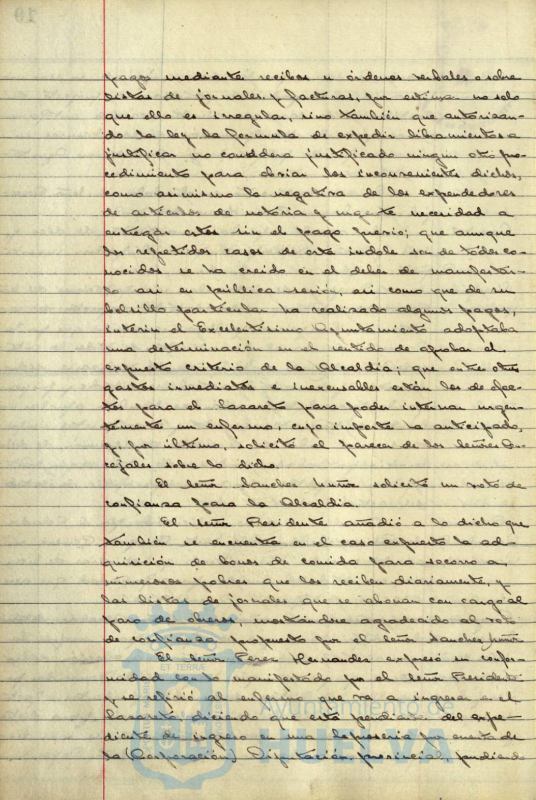 pagos mediante recibos u órdenes verbales o sobre
listas de jornales y facturas, por estimar no solo
que ello es irregular, sino también que autorizan-
do la ley la fórmula de expedir libramientos a
justificar no considera justificado ningun otro pro-
cedimiento para obviar los inconvenientes dichos,
como asimismo la negativa de los expendedores
de articulos de notoria y urgente necesidad a
entregar estos sin el pago previo; que aunque
los repetidos casos de esta indole son de todos co-
nocidos se ha creido en el deber de manifestar-
lo asi en pública sesión, asi como que de su
bolsillo particular ha realizado algunos pagos,
interin el Excelentisimo Ayuntamiento adoptaba
una determinación en el sentido de aprobar el
expuesto criterio de la Alcaldia; que entre otros
gastos inmediatos e inexcusables están los de efec-
tos para el lazareto para poder internar urgen-
temente un enfermo, cuyo importe ha anticipado,
y, por último, solicitó el parecer de los señores Con-
cejales sobre lo dicho.
El señor Sanchez Muñiz solicitó un voto de
confianza para la Alcaldia.
El señor Presidente añadió a lo dicho que
también se encuentra en el caso expuesto la ad-
quisición de bonos de comida para socorro a
numerosos pobres que los reciben diariamente, y
las listas de jornales que se abonan con cargo al
paro de obreros, mostrándose agradecido al voto
de confianza propuesto por el señor Sanchez Muñiz
El señor Perez Hernandez expresó su confor-
midad con lo manifestado por el señor Presidente
y se refirió al enfermo que va a ingresar en el
lazareto, diciendo que está pendiente del expe-
diente de ingreso en una leproseria por cuenta de
la (Corporación) Diputación provincial, pudiendo
ET TERRA
Ayuntamiento de
HUELVA